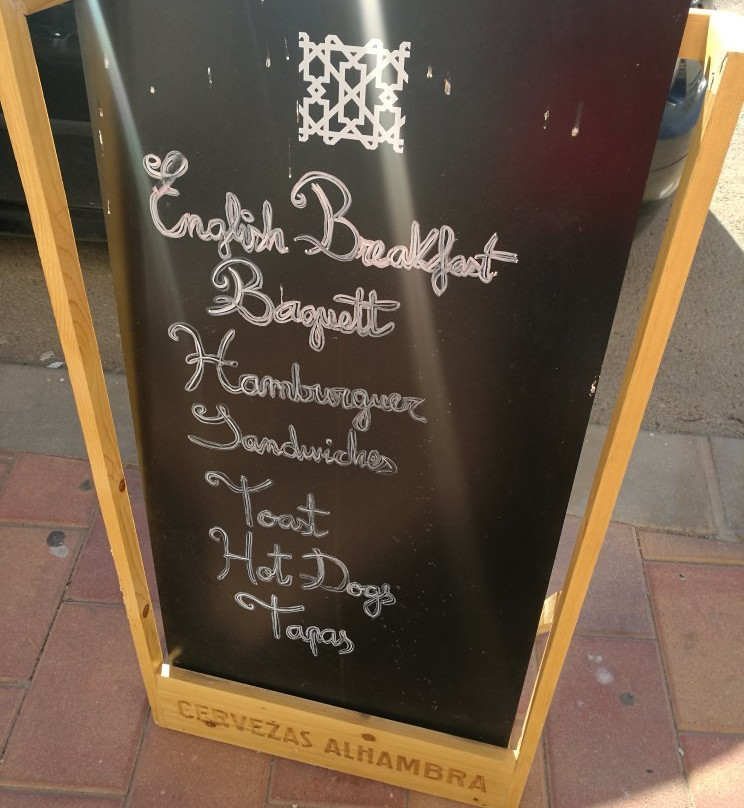 English Breakfast
Baguett
Hamburguer
Sandwiches
Toast
Hot Dogs
Tapas
CERVEZAS ALHAMBRA